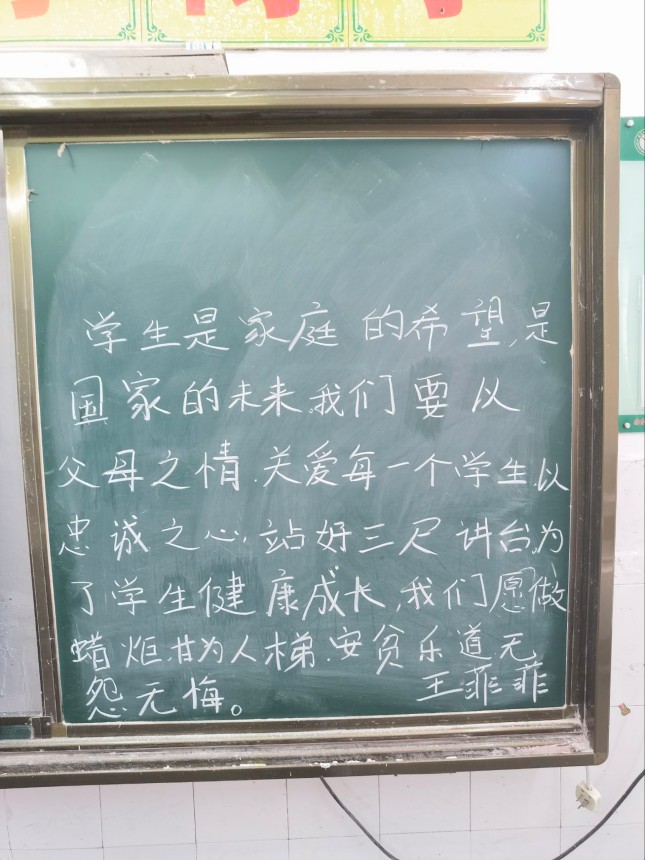 学生是家庭的希望,是
国家的未来,我们要以
父母之情,关爱每一个学生,以
忠诚之心,站好三尺讲台,为
了学生健康成长,我们愿做
蜡炬,甘为人梯,安贫乐道,无
怨无悔。 王菲菲